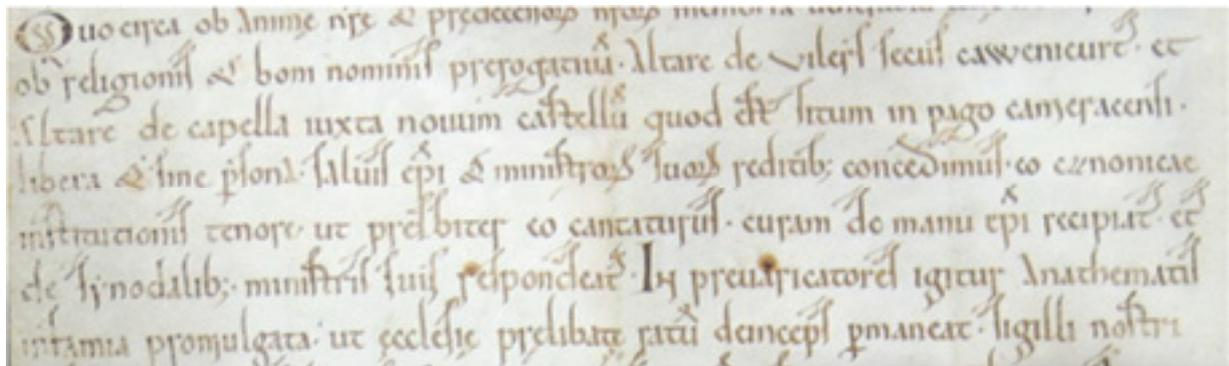 Quo circa ob anime nr̄e & predecessorū nr̄orū memoria
ob religionis & boni nominis prerogativū. Altare de vilers secus cawenicurt. et
Altare de capella iuxta novum castellū quod est situm in pago cameracensi.
libera & sine p̄sona. salvis ep̄i & ministrorū suorū reditib; concedimus. eo canonicae
institucionis tenore. ut presbiter eo cantaturus. curam de manu ep̄i recipiat. et
de synodalib;. ministris suis respondeat. In prevaricatores igitur Anathematis
infamia promulgata. ut ecclesie prelibate ratū deinceps p̄maneat. sigilli nostri